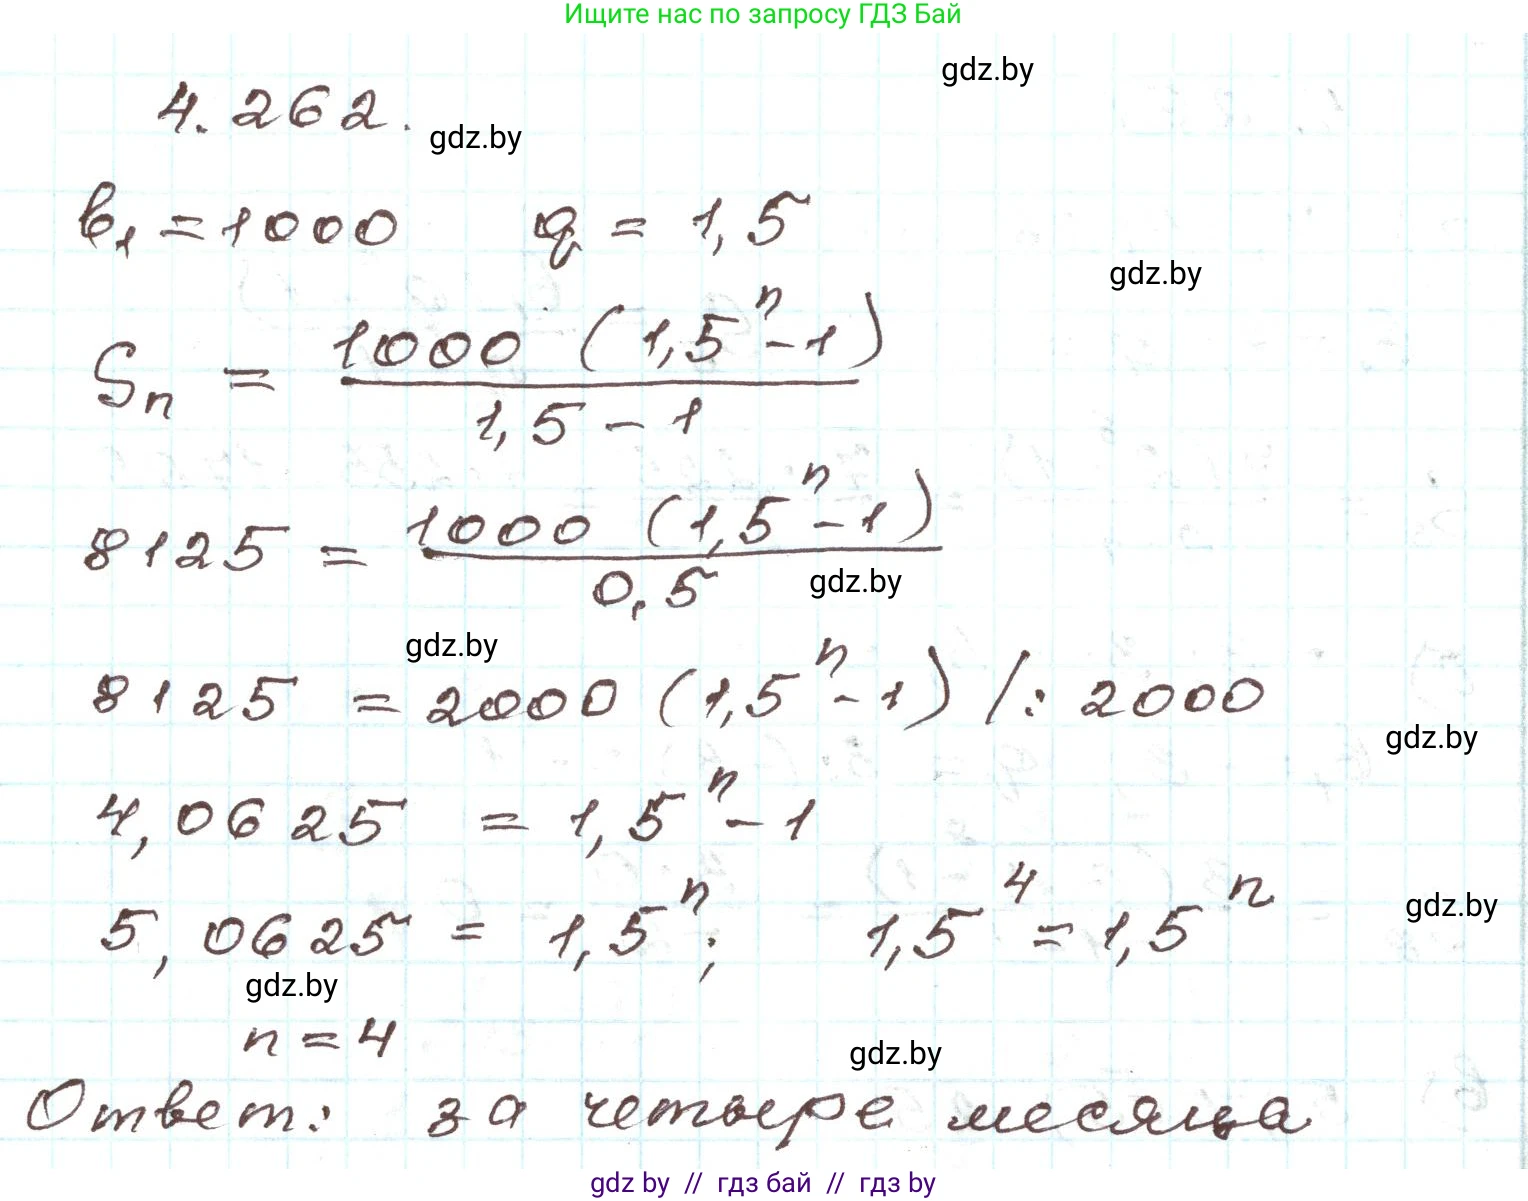 Ищите нас по запросу ГДЗ Бай
gdz.by
4.262.
gdz.by
b₁ = 1000 q = 1,5
gdz.by
Sₙ = 1000 (1,5ⁿ - 1) / 1,5 - 1
8125 = 1000 (1,5ⁿ - 1) / 0,5
gdz.by
gdz.by
8125 = 2000 (1,5ⁿ - 1) /: 2000
gdz.by
4,0625 = 1,5ⁿ - 1
5,0625 = 1,5ⁿ; 1,5⁴ = 1,5ⁿ
gdz.by
gdz.by
n = 4
gdz.by
Ответ: за четыре месяца
gdz by // гдз бай // гдз by